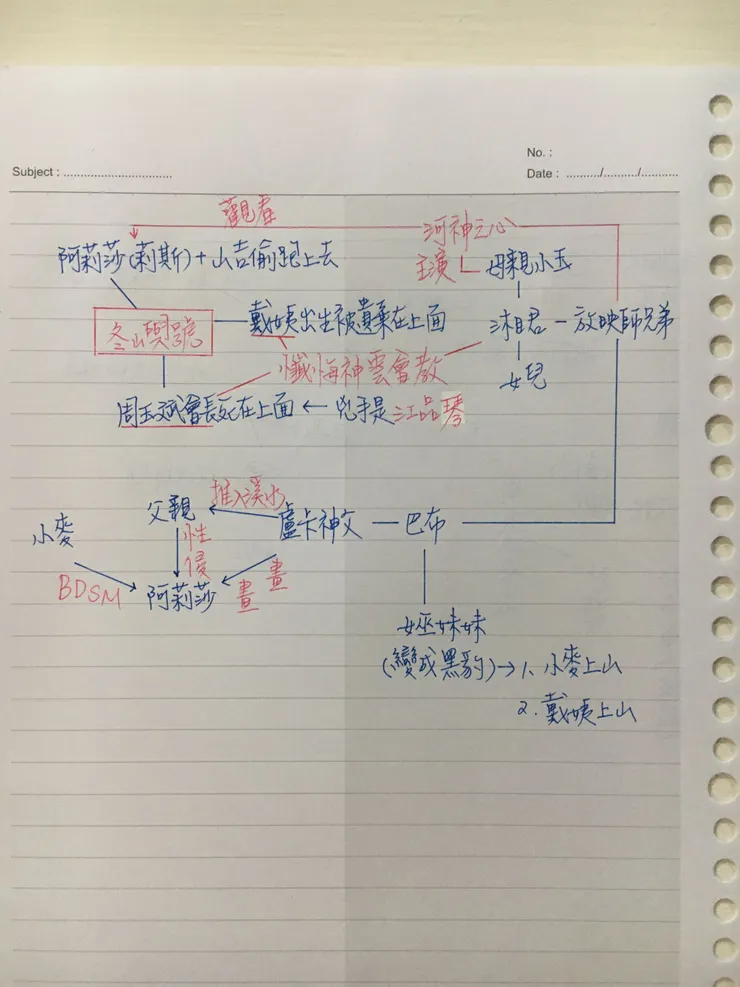 No. :
Subject : ..............................
Date : ........../........../...........
觀看
河神之心
阿莉莎(莉斯)+山吉偷跑上去
主演 母親小玉
冬山與號 戴姨出生被遺棄在上面 沐君 — 放映師兄弟
懺悔神雲會教
女兒
周玉斌會長死在上面 ← 兇手是江品琴
推入溪水
父親 盧卡神父 — 巴布
小麥
性侵
畫 畫
BDSM 阿莉莎
女巫妹妹
(變成黑豹)→ 1. 小麥上山
2. 戴姨上山